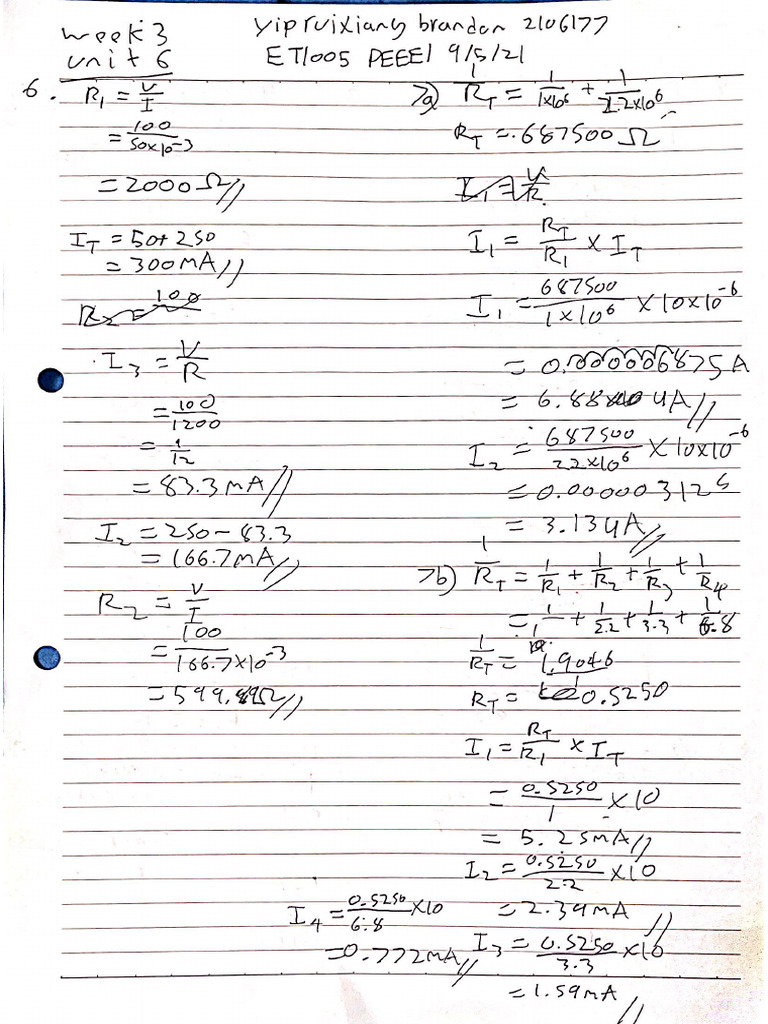 week 3
unit 6
Yip ruixiang brandon 2106177
ET1005 PEEE1 9/5/21
6. R₁ = V/I
= 100/50×10⁻³
= 2000Ω//
I_T = 50+250
= 300mA//
R₂ = 100
I₃ = V/R
= 100/1200
= 1/12
= 83.3mA//
I₂ = 250 - 83.3
= 166.7mA//
R₂ = V/I
= 100/166.7×10⁻³
= 599.88Ω//
7a) 1/R_T = 1/1×10⁶ + 1/2.2×10⁶
R_T = 687500Ω
I₁ = V/R
I₁ = R_T/R₁ × I_T
I₁ = 687500/1×10⁶ × 10×10⁻⁶
= 0.000006875A
= 6.88uA//
I₂ = 687500/2.2×10⁶ × 10×10⁻⁶
= 0.000003125
= 3.13uA//
7b) 1/R_T = 1/R₁ + 1/R₂ + 1/R₃ + 1/R₄
= 1/1 + 1/2.2 + 1/3.3 + 1/6.8
1/R_T = 1.9046
R_T = 0.5250
I₁ = R_T/R₁ × I_T
= 0.5250/1 × 10
= 5.25mA//
I₂ = 0.5250/2.2 × 10
= 2.39mA//
I₃ = 0.5250/3.3 × 10
= 1.59mA//
I₄ = 0.5250/6.8 × 10
= 0.772mA//